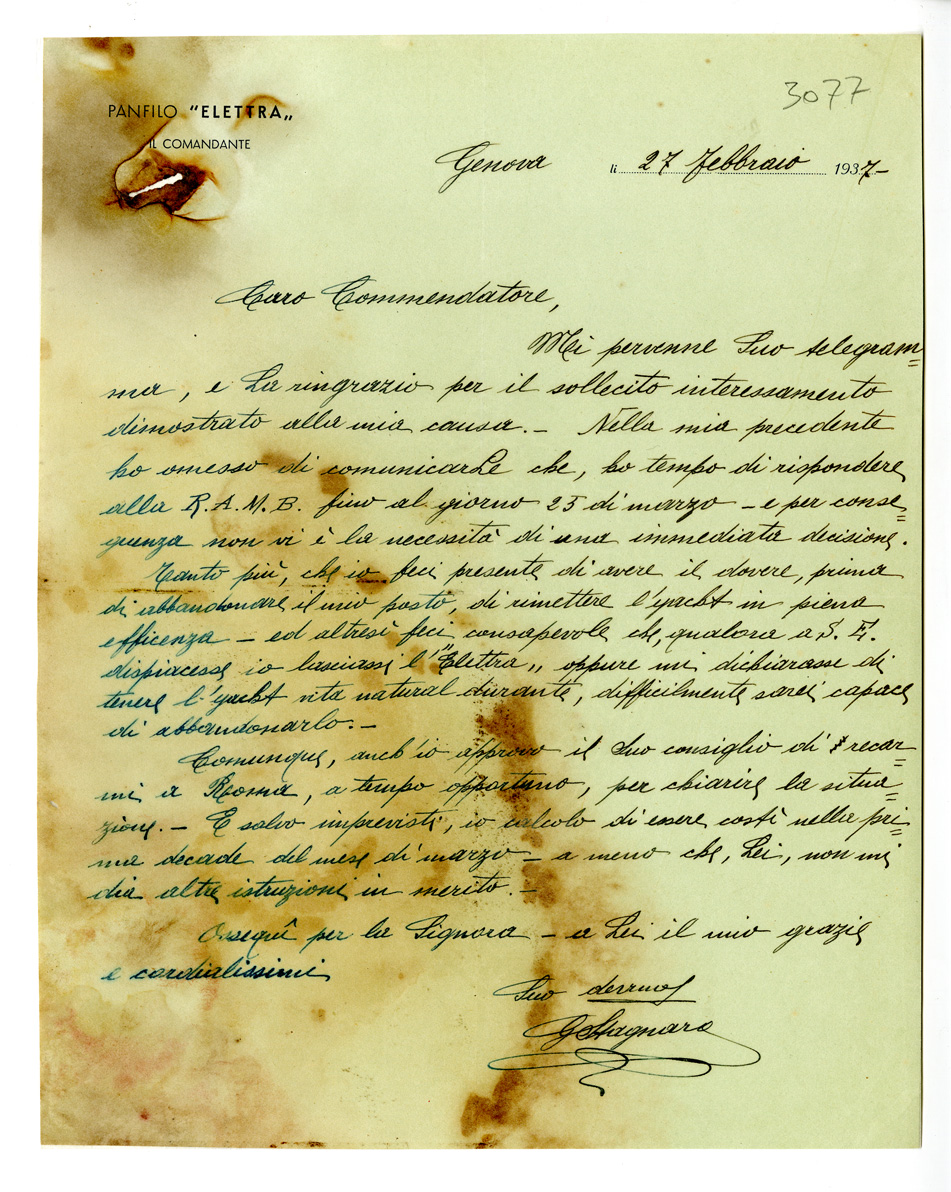 3077
PANFILO "ELETTRA„
IL COMANDANTE
Genova li 27 Febbraio 1937-
Caro Commendatore,
Mi pervenne Suo telegram=
ma, e La ringrazio per il sollecito interessamento
dimostrato alla mia causa.- Nella mia precedente
ho omesso di comunicarLe che, ho tempo di rispondere
alla R.A.M.B. fino al giorno 25 di marzo - e per conse=
guenza non vi è la necessità di una immediata decisione.
Tanto più, che io feci presente di avere il dovere, prima
di abbandonare il mio posto, di rimettere l'yacht in piena
efficenza - ed altresì feci consapevole che, qualora a S. E.
dispiacesse io lasciassi l'"Elettra„ oppure mi dichiarasse di
tenere l'yacht vita natural durante, difficilmente sarei capace
di abbandonarlo.-
Comunque, anch'io approvo il Suo consiglio di recar=
mi a Roma, a tempo opportuno, per chiarire la situa=
zione.- E salvo imprevisti, io calcolo di essere costì nella pri=
ma decade del mese di marzo - a meno che, Lei, non mi
dia altre istruzioni in merito.-
Ossequî per la Signora - a Lei il mio grazie
e cordialissimi
Suo devmo
GStagnaro